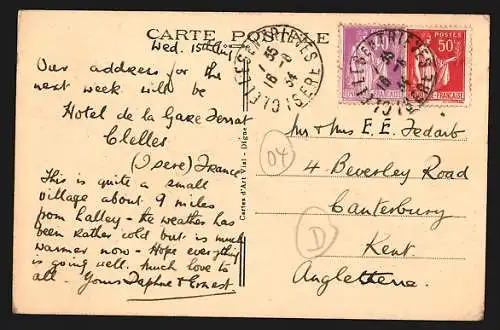 CARTE POSTALE
Wed. 15th Aug
Our address for the
next week will be
Hotel de la Gare Ferrat
Clelles
(Isere) France
This is quite a small
village about 9 miles
from Lalley - the weather has
been rather cold but is much
warmer now - Hope everything
is going well. Much love to
all. Yours Daphne & Ernest.
Cartes d'Art Vial - Digne
CLELLES EN TRIEVES
ISERE
CLELLES EN TRIEVES
50c
POSTES
Mr & Mrs E. E. Fedarb
4 Beverley Road
Canterbury
Kent.
Angleterre.
04
D